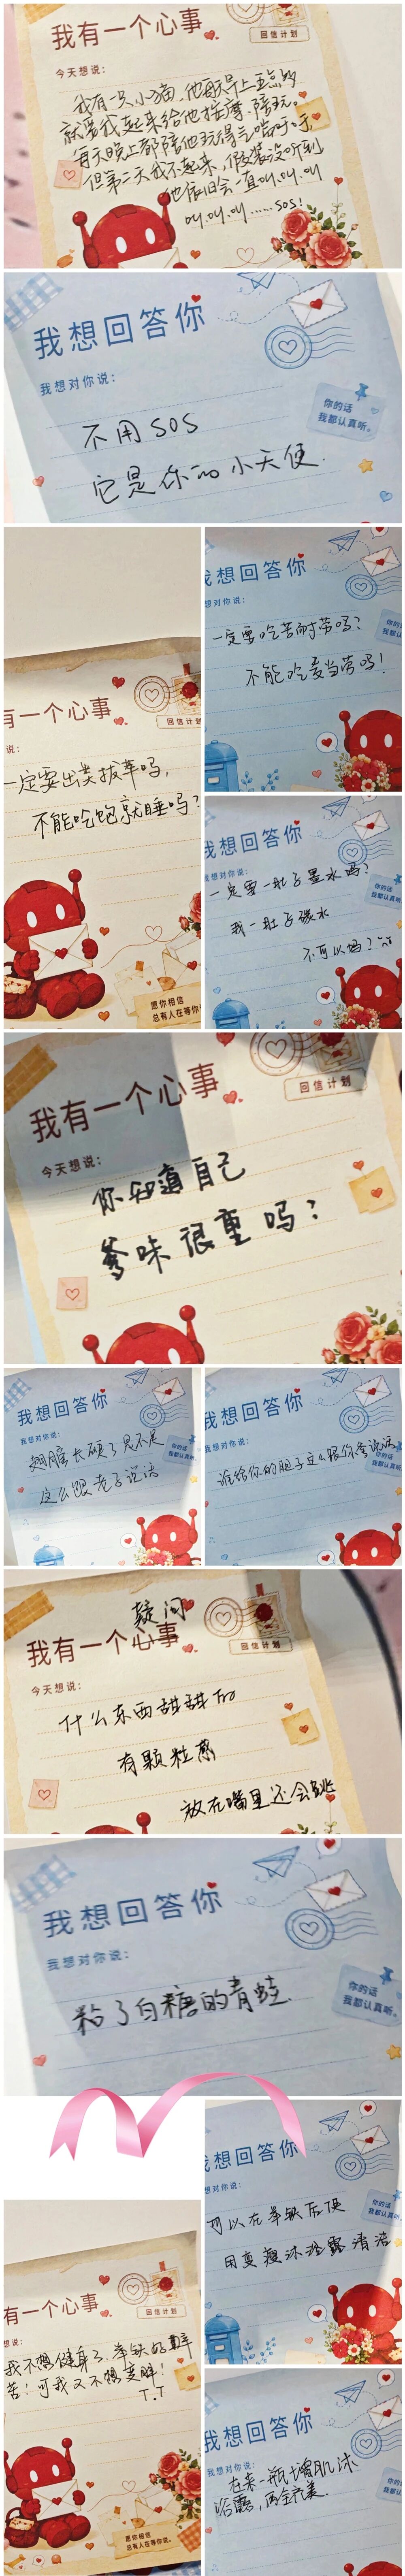 我有一个心事
回信计划
今天想说：
我有一只小猫，他每天早上五点的
就爱我起来给他按摩、陪玩。
每天晚上都陪他玩得气喘吁吁，
但第二天我不起来，假装没听到
他依旧会一直叫.叫.叫
叫.叫.叫……SOS！
我想回答你
我想对你说：
你的话
我都认真听。
不用SOS
它是你的小天使.
有一个心事
回信计划
说：
一定要出类拔萃吗，
不能吃饱就睡吗？
愿你相信
总有人在等你
我想回答你
想对你说：
你的
我都
一定要吃苦耐劳吗？
不能吃麦当劳吗！
我想回答你
我想对你说：
你的
我都
一定要一肚子墨水吗？
我一肚子碳水
不可以吗？
我有一个心事
回信计划
今天想说：
你知道自己
爹味很重吗？
我想回答你
我想对你说：
你的话
我都认真
翅膀长硬了是不是
这么跟老子说话
我想回答你
我想对你说：
你的话
我都认真听
谁给你的胆子这么跟你爹说话
疑问
我有一个心事
回信计划
今天想说：
什么东西甜甜的
有颗粒感
放在嘴里还会跳
我想回答你
我想对你说：
你的话
我都认真听。
粘了白糖的青蛙.
有一个心事
回信计划
说：
我不想健身了.举铁好辛
苦！可我又不想变胖！
T.T
愿你相信
总有人在等你说。
我想回答你
想对你说：
你的话
我都认真听
可以在举铁后使
用变瘦沐浴露清洁
我想回答你
我想对你说：
你的话
我都认真听
在来一瓶增肌沐
浴露，两全其美.